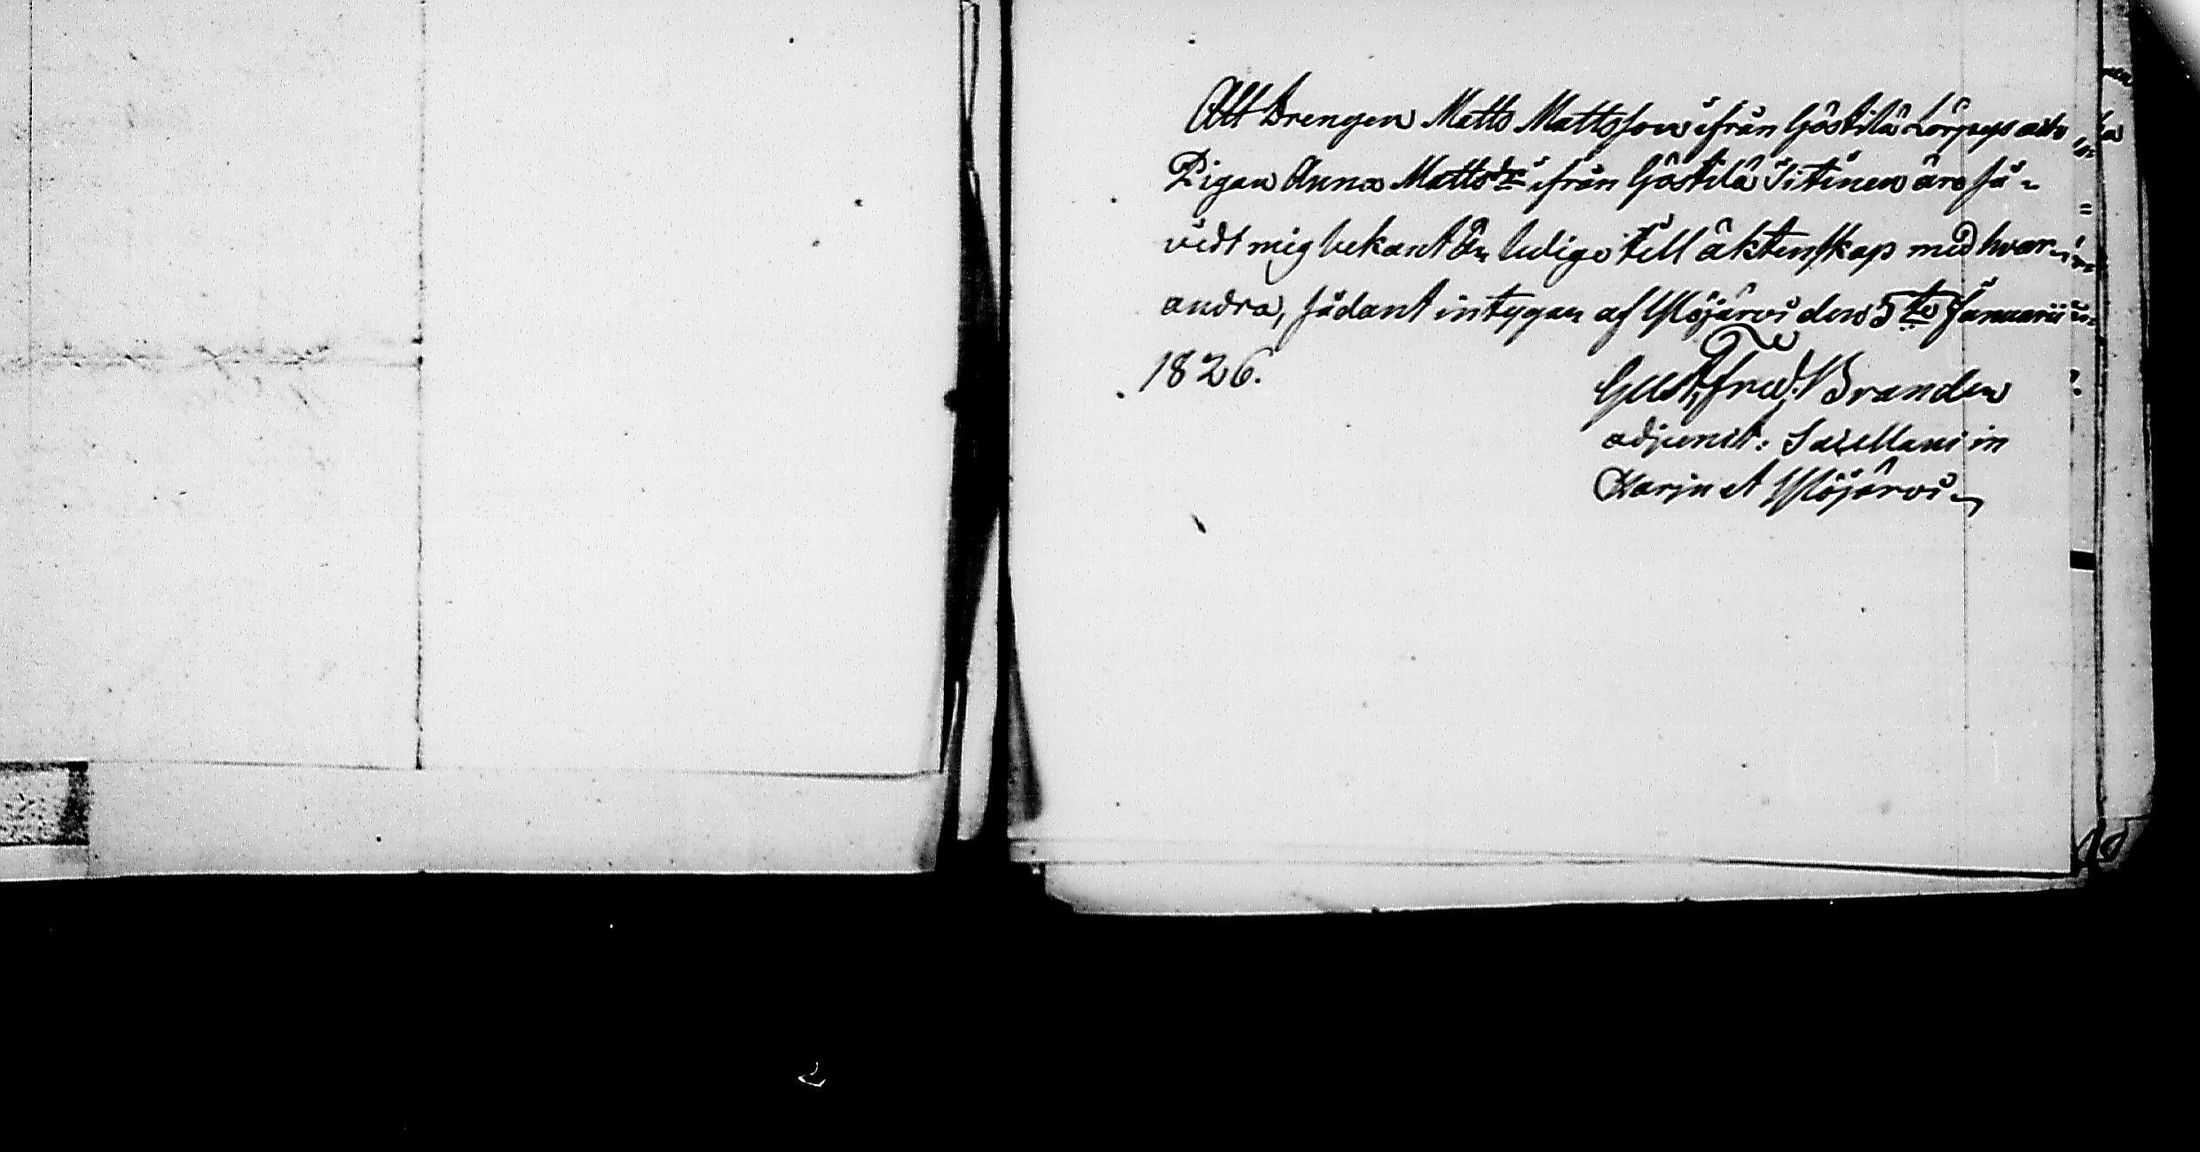 Att Drengen Matts Mattsson ifrån Göstilä Lörpys och
Pigan Anna Mattsdr ifrån Göstilä Iitinen äro så-
vidt mig bekant än ledige till äktenskap med hvar-
andra, sådant intygar af Ylöjärvi den 5te Januarii
1826.
Gust. Fred. Brander
adjunct: Sacellani in
Karju et Ylöjärvi